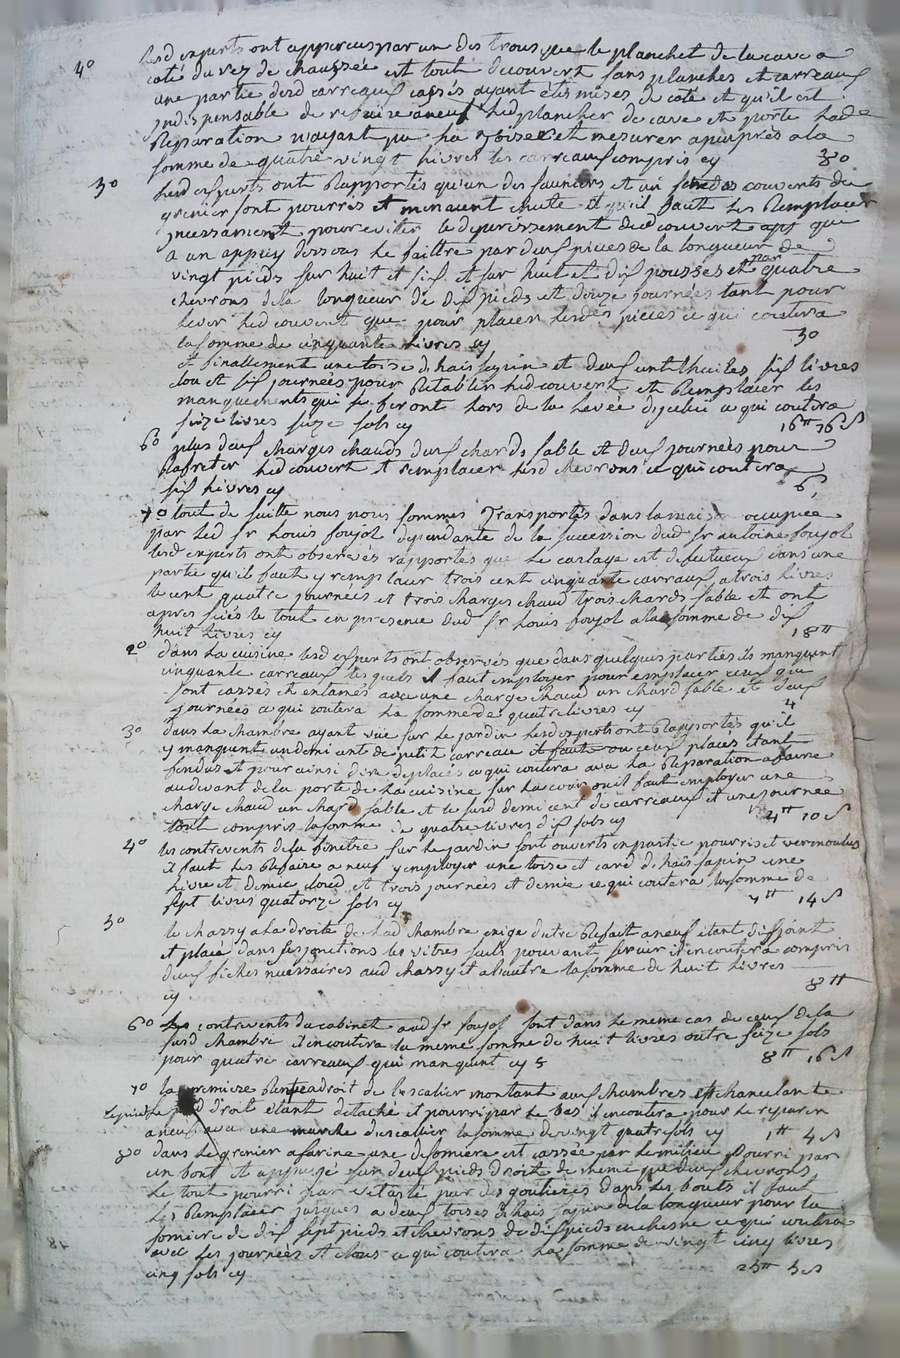 4° lesd experts ont appercus par un des trous que le planchet de la cave a
coté du rez de chaussée est tout decouvert sans planches et carreaux
une partie desd carreaux cassés ayant étés mises de coté et qu'il est
indispensable de refaire aneuf led plancher de cave et porte lade
Reparation n'ayant pu la toiser et mesurer apeuprés ala
somme de quatre vingt livres les carreaux compris cy 80
5° lesd experts ont Rapportés qu'un des et un des couverts du
grenier sont pourris et menacent chute et qu'il faut les Remplacer
incessament pour eviter le deperissement dud couvert que
a un appuy dessous le faittre par deux pieces de la longueur de
vingt pieds sur huit et six et sur huit et dix pousses et par quatre
chevrons dela longueur de dix pieds et douze journées tant pour
lever led couvert que pour placer lesdes pieces ce qui coutera
la somme de cinquante livres cy 50
et finallement une toise d'hais sapin et deux cent thuiles six livres
clou et six journées pour Retablir led couvert et Remplacer les
manquements qui se feront hors de la levée ce qui coutera
seize livres seize sols cy 16 tt 16 s
6° plus deux charges chaud deux chards sable et deux journées pour
led couvert et remplacer lesd chevrons ce qui coutera
six livres cy 6
7° tout de suitte nous nous sommes Transportés dans la maison occupée
par led sr Louis foujol dependante de la succession dud sr antoine foujol
lesd experts ont observés rapportés que le carlage est defectueux dans une
partie qu'il faut y remplacer trois cent cinquante carreaux a trois livres
le cent quatre journées et trois charges chaud trois chards sable et ont
apreciés le tout en presence dud sr Louis foujol ala somme de dix
huit livres cy 18 tt
2° dans la cuisine lesd experts ont observés que dans quelques parties ils manquent
cinquante carreaux lesquels il faut employer pour remplacer ceux qui
sont cassés et entamés avec une charge chaud un chard sable et deux
journées ce qui coutera la somme de quatre livres cy 4
3° dans la chambre ayant vüe sur le jardin lesd experts ont Rapportés qu'il
y manquent un demi cent de petit carreau et faut ou ceux placés etant
fendus et pour ainsi dire deplacés ce qui coutera avec la Reparation afaire
audevant dela porte de la cuisine sur la cour ou il faut employer une
charge chaud un chard sable et le susd demi cent de carreaux et une journée
tout compris la somme de quatre livres dix sols cy 4 tt 10 s
4° les contrevents dela fenetre sur le jardin sont ouverts en partie pourris et vermoulus
il faut les Refaire aneuf y employer une toise et card d'hais sapin une
livre et demie cloud et trois journées et demie ce qui coutera la somme de
sept livres quatorze sols cy 7 tt 14 s
5° le chassy ala droite de lad chambre exige d'etre Refait aneuf etant disjoint
et placé dans ses jonctions les vitres seuls pouvant servir il en coutera compris
deux fiches necessaires aud chassy et alautre la somme de huit livres
cy 8 tt
6° Les contrevents du cabinet aud sr foujol sont dans le meme cas de ceux de la
susd chambre il en coutera la meme somme de huit livres outre seize sols
pour quatre carreaux qui manquent cy 8 tt 16 s
7° la premiere Rampe adroit de lescalier montant aux chambres est chancelante
le pied droit etant detaché et pourri par le bas il en coutera pour le reparer
aneuf avec une marche d'escalier la somme de vingt quatre sols cy 1 tt 4 s
8° dans le grenier a farine une des somiere est cassée par le milieu Pourri par
un bout et appuyé sur deux pieds droit de meme que deux chevrons
le tout pourri par vetusté par des goutieres dans les bouts il faut
les Remplacer jusques a deux toises d'hais sapin dela longueur pour la
somiere de dix sept pieds et chevrons de dix pieds en chesne ce qui coutera
avec les journées et clous ce qui coutera la somme de vingt cinq livres
cinq sols cy 25 tt 5 s